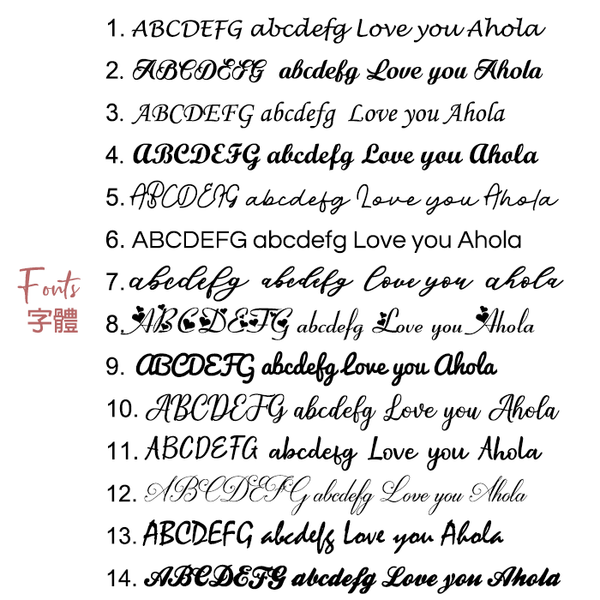 1. ABCDEFG abcdefg Love you Ahola
2. ABCDEFG abcdefg Love you Ahola
3. ABCDEFG abcdefg Love you Ahola
4. ABCDEFG abcdefg Love you Ahola
5. ABCDEFG abcdefg Love you Ahola
6. ABCDEFG abcdefg Love you Ahola
Fonts
字體
7. abcdefg abcdefg Love you ahola
8. ABCDEFG abcdefg Love you Ahola
9. ABCDEFG abcdefg Love you Ahola
10. ABCDEFG abcdefg Love you Ahola
11. ABCDEFG abcdefg Love you Ahola
12. ABCDEFG abcdefg Love you Ahola
13. ABCDEFG abcdefg Love you Ahola
14. ABCDEFG abcdefg Love you Ahola